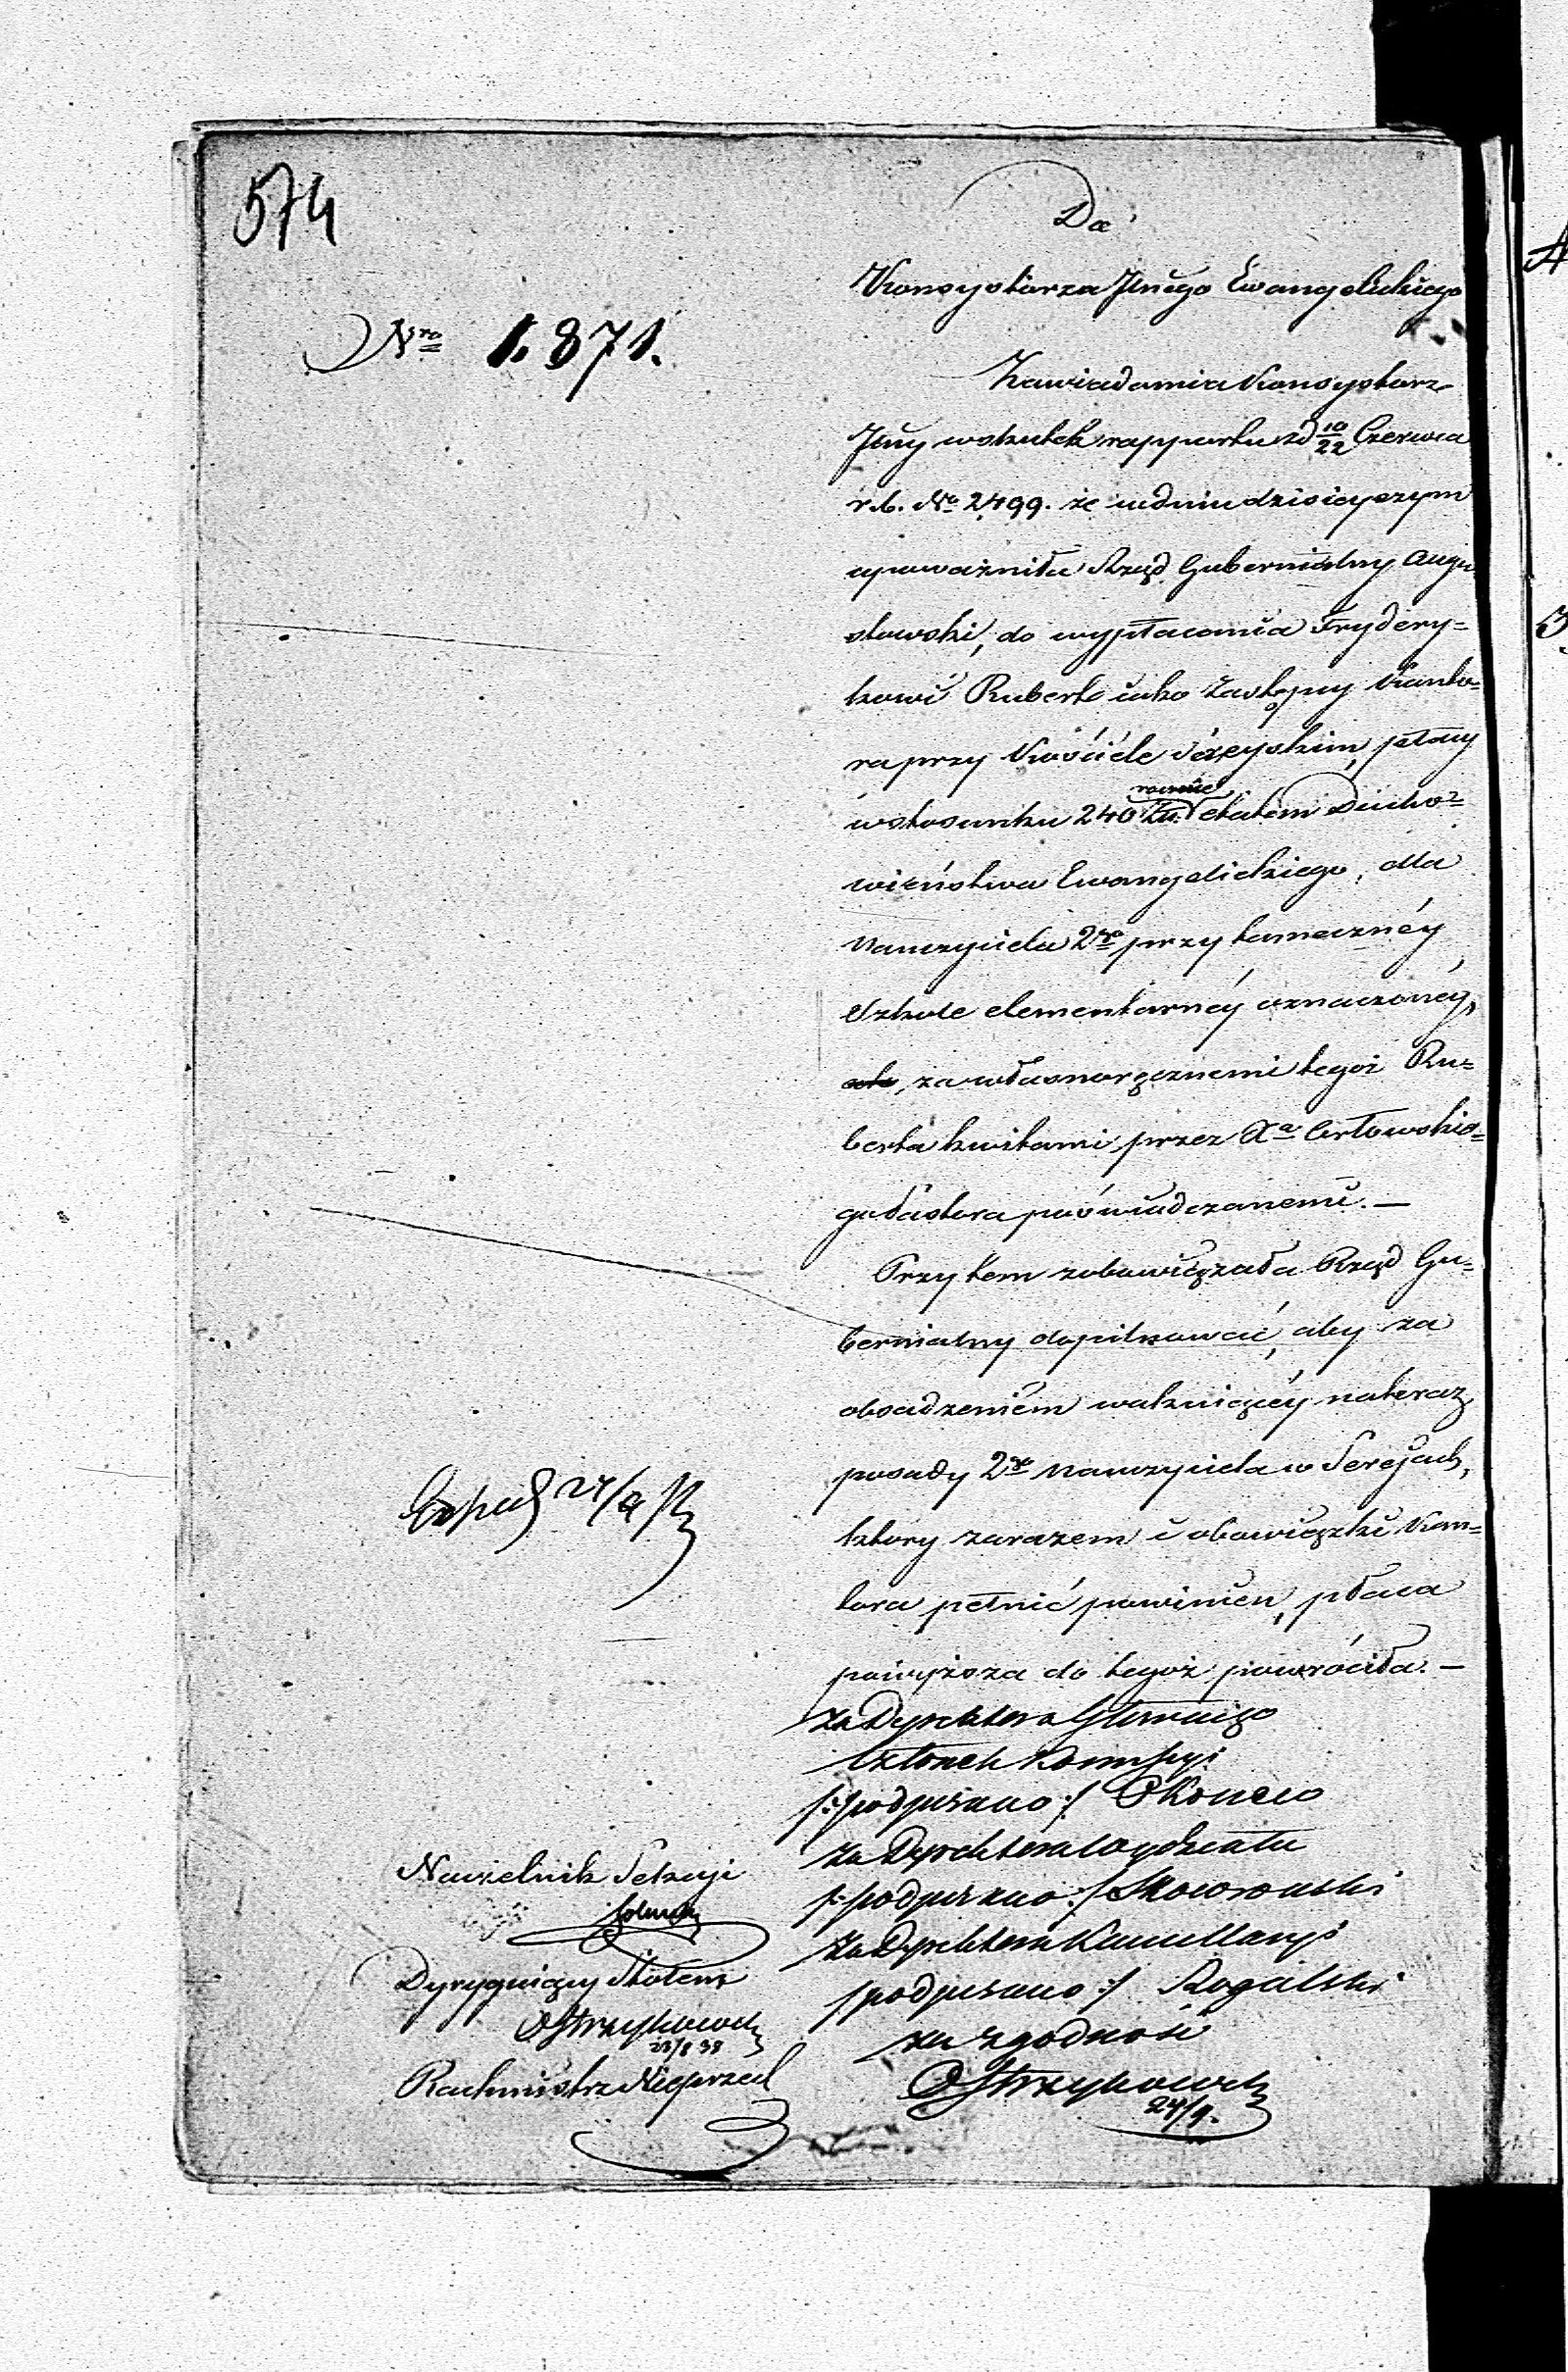 574
Do
Konsystorza Jlnego Ewangelickiego
Nro 1.871.
Zawiadamia Konsystorz
Jlny wskutek rapportu z d 10/22 Czerwca
r. b. No 2499. że w dniu dzisieyszym
upoważniła Rząd Gubernialny Augu
stowski, do wypłacenia Frydery=
kowi Rubert iako Zastępcy Kanto=
ra przy Kościele Sereyskim, płacy
w stosunku 240 Zł. rocznie etatem Ducho=
wieństwa Ewangelickiego, dla
Nauczyciela 2go przy tameczney
Szkole elementarnéy oznaczonéy,
za własnoręcznemi tegoż Ru=
berta kwitami, przez Xa Orłowskie=
go Pastora poświadczanemi. —
Przytem zobowiązała Rząd Gu=
bernialny dopilnować, aby za
obsadzeniem wakuiącéy na teraz
posady 2go Nauczyciela w Serejach,
który zarazem i obowiązki Kan=
tora pełnić powinien, płaca
powyższa do tegoż powróciła. —
Za Dyrektora Głównego
Członek Kommissyi
/:podpisano:/ Okoniew
Za Dyrektora Wydziału
/:podpisano:/
Za Dyrektora Kancellaryi
/podpisano:/ Rogalski
za zgodność
Ostrzykowski
24/9.
Exped 27/9
Naczelnik Sekcyi
Dyryguiący Stołem
Ostrzykowski
23/8 38
Rachmistrz